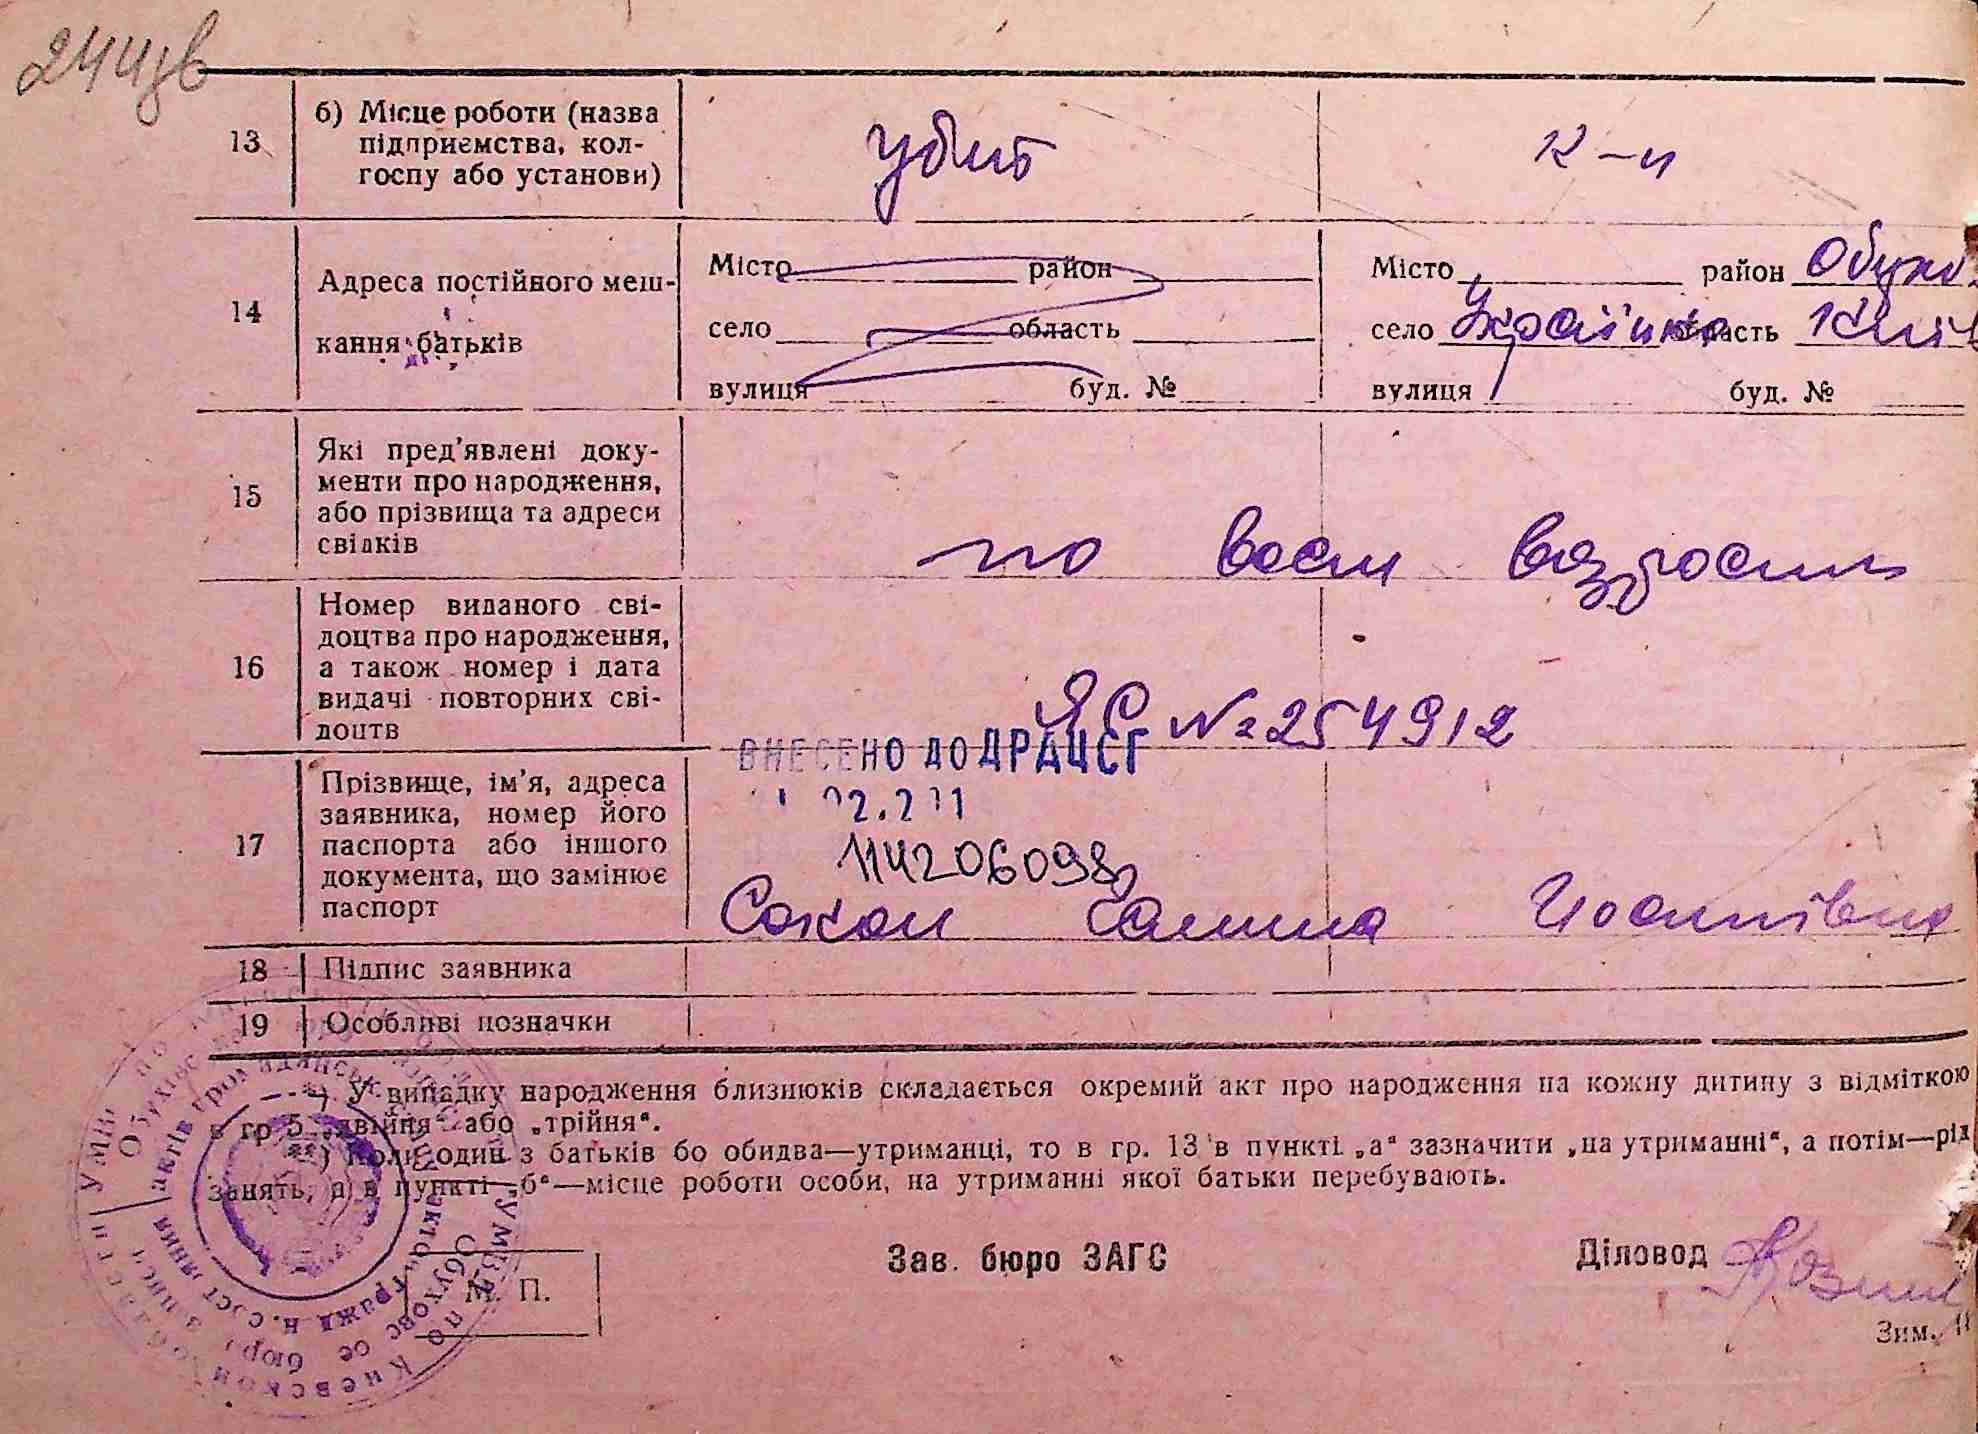 24 цв
13 б) Місце роботи (назва підприємства, колгоспу або установи) убит к-и
14 Адреса постійного мешкання батьків
Місто район
село область
вулиця буд. №
Місто район Обухо
село Українка область Київ
вулиця буд. №
15 Які пред'явлені документи про народження, або прізвища та адреси свідків
по восм
16 Номер виданого свідоцтва про народження, а також номер і дата видачі повторних свідоцтв
ЯС № 254912
ВНЕСЕНО ДО ДРАЦСГ
114206098
17 Прізвище, ім'я, адреса заявника, номер його паспорта або іншого документа, що замінює паспорт
Сокол Галина Йосипівна
18 Підпис заявника
19 Особливі позначки
*) У випадку народження близнюків складається окремий акт про народження на кожну дитину з відміткою
в гр. 5 „двійня“ або „трійня“.
**) Коли один з батьків бо обидва—утриманці, то в гр. 13 в пункті „а“ зазначити „на утриманні“, а потім—рід
занять, а в пункті „б“—місце роботи особи, на утриманні якої батьки перебувають.
М. П.
Зав. бюро ЗАГС
Діловод
Зим.